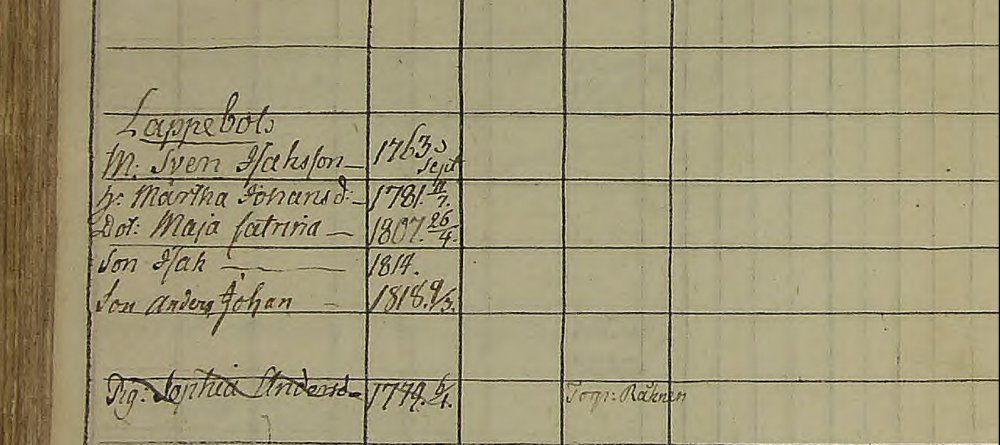 Lappebols
M: Sven Isaksson 1763 Sept
h: Märtha Johansd: 1781. 11/7.
Dot: Maja Catrina 1807. 26/4.
Son Isak 1814.
Son Anders Johan 1818. 9/3.
Pig: Sophia Andersd 1779. 6/1.